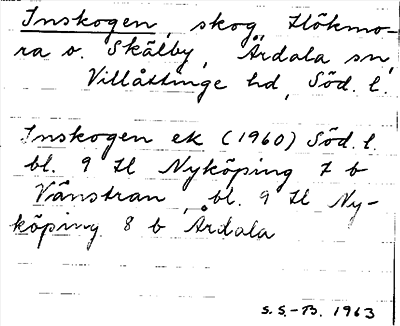 Inskogen, skog Hökmo-
ra o. Skälby, Årdala sn,
Villåttinge hd, Söd. l.
Inskogen ek (1960) Söd. l.
bl. 9 H Nyköping 7 b
Vånstran, bl. 9 H Ny-
köping 8 b Årdala
S.S.-B. 1963